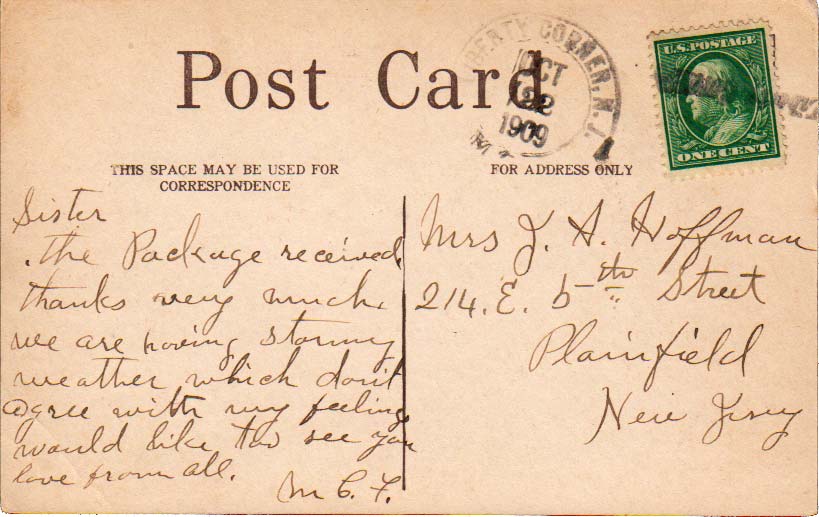 Post Card
LIBERTY CORNER, N.J.
OCT
22
1909
U.S. POSTAGE
ONE CENT
THIS SPACE MAY BE USED FOR
CORRESPONDENCE
FOR ADDRESS ONLY
Sister
the Package received
thanks very much.
we are having stormy
weather which don't
agree with my feeling
would like too see you
love from all.
M C. F.
Mrs J. A. Hoffman
214. E. 5th Street
Plainfield
New Jersy